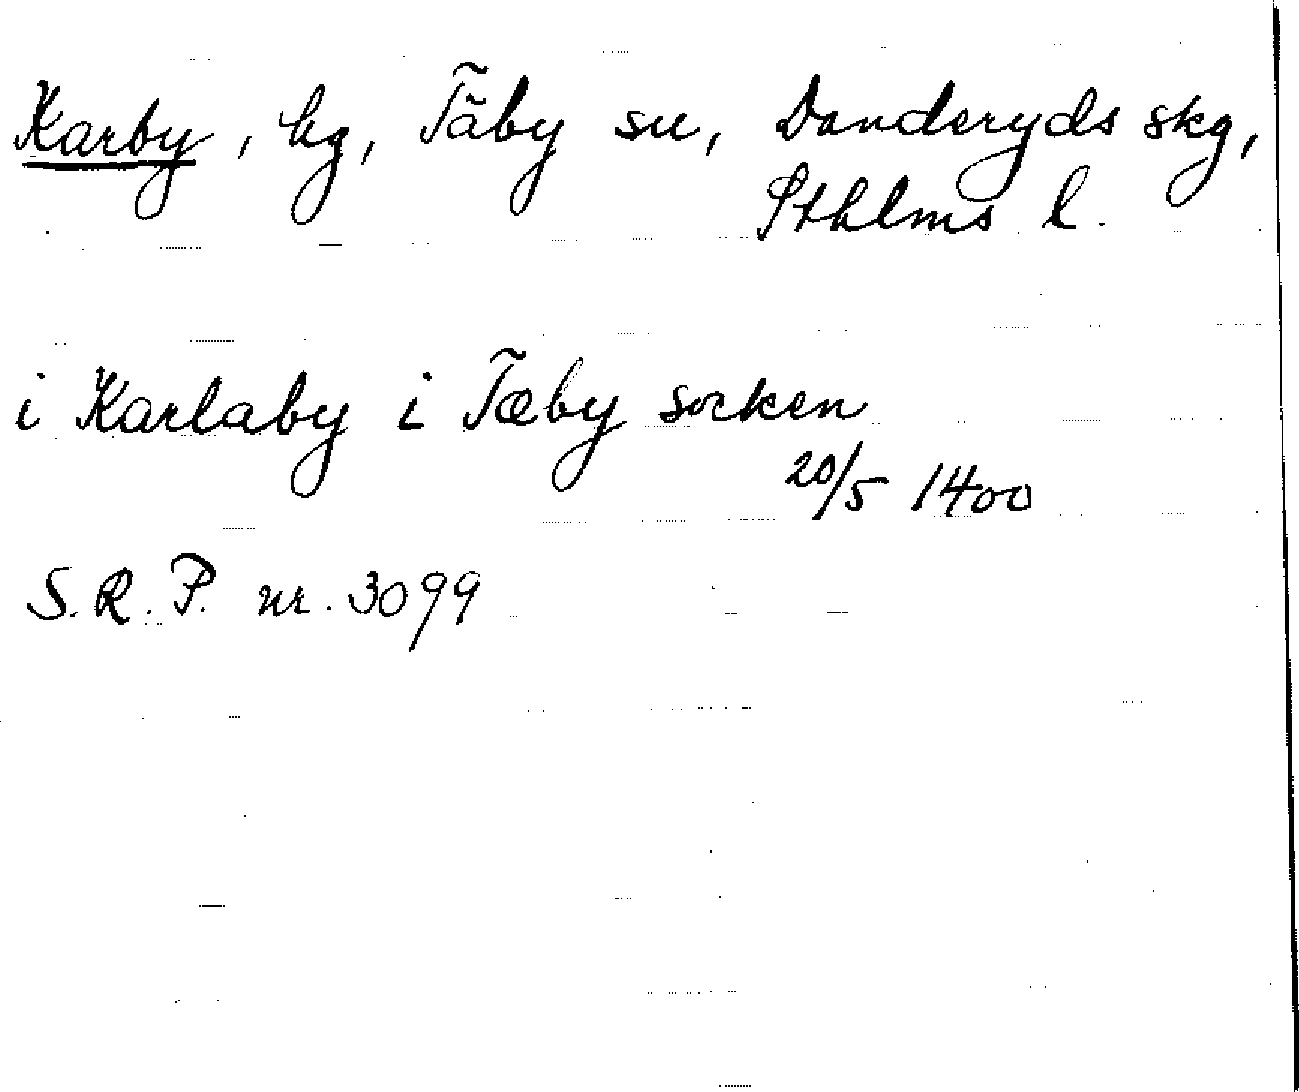 Karby, by, Täby sn, Danderyds skg,
Sthlms l.
i Karlaby i Tæby socken
20/5 1400
S.R.P. nr. 3099